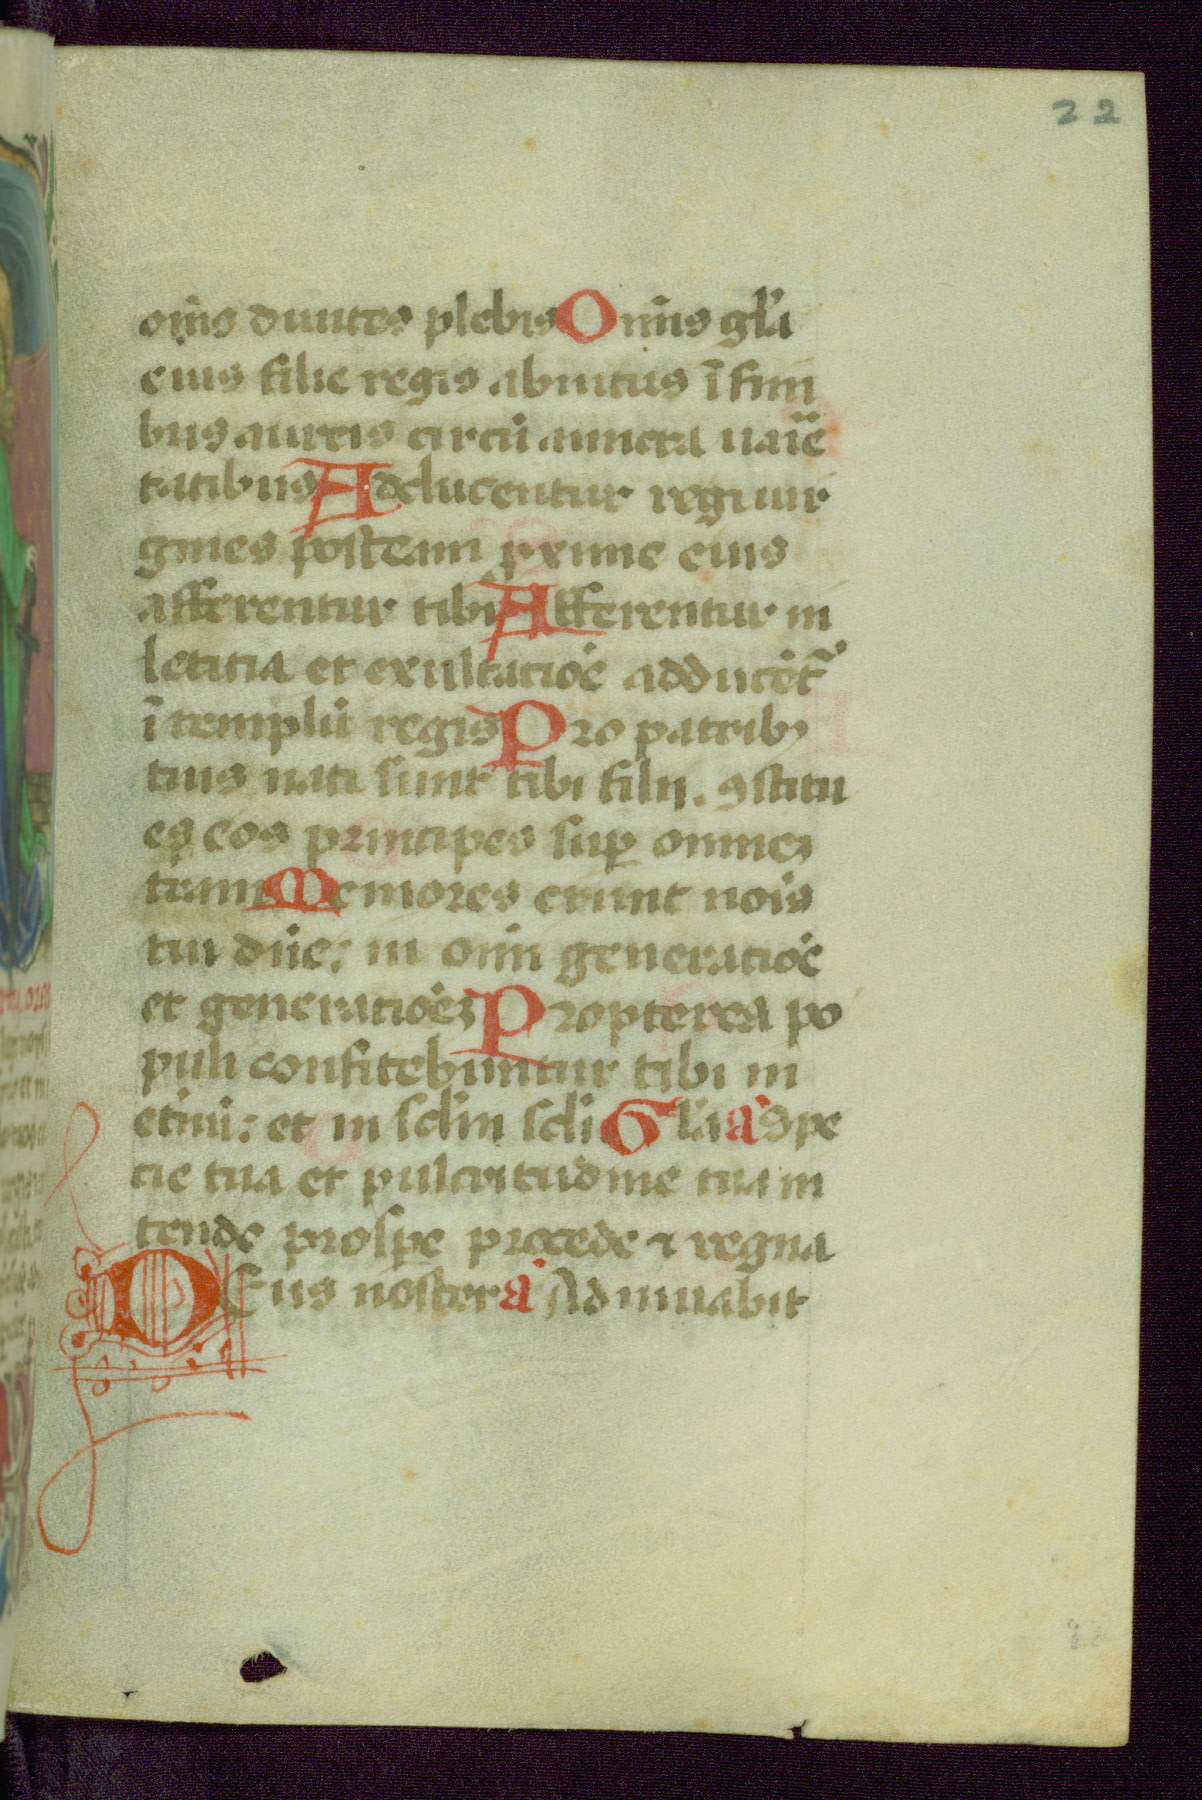 22
om̅s diuites plebis Om̅is gl̅i
eius filie regis abintus i̅ fim
bus aureis circu̅ amicta uarie̅
tatibus Adducentur regi uir
gines post eam pxime eius
afferentur tibi Afferentur in
letitia et exultatio̅e adducêt᷑
i̅ templu̅ regis Pro patribꝫ
tuis nati sunt tibi filii. ꝯstitu
es eos principes sup̲ omneꝫ
tram Memores erunt nois̅
tui dn̅e: in om̅i generatio̅e
et generatio̅eꝫ Propterea po
puli confitebuntur tibi in
et̅nu̅: et in sclm̅ scli̅ Gl̅ia a̅ Spe
cie tua et pulcritudine tua in
tende prosp̲e procede ⁊ regna
DEus noster a̅ Adiuuabit